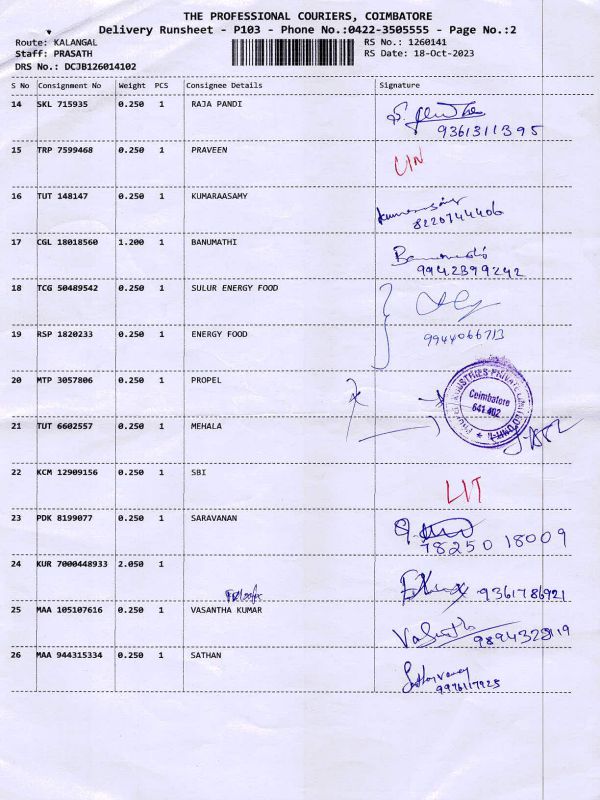 THE PROFESSIONAL COURIERS, COIMBATORE
Delivery Runsheet - P103 - Phone No.:0422-3505555 - Page No.:2
Route: KALANGAL
RS No.: 1260141
Staff: PRASATH
RS Date: 18-Oct-2023
DRS No.: DCJB126014102
S No Consignment No Weight PCS Consignee Details Signature
14 SKL 715935 0.250 1 RAJA PANDI
9361311395
15 TRP 7599468 0.250 1 PRAVEEN
16 TUT 148147 0.250 1 KUMARAASAMY
8220744406
17 CGL 18018560 1.200 1 BANUMATHI
9942899242
18 TCG 50489542 0.250 1 SULUR ENERGY FOOD
19 RSP 1820233 0.250 1 ENERGY FOOD
9944066713
20 MTP 3057806 0.250 1 PROPEL
INDUSTRIES PRIVATE LIMITED
Coimbatore
641 402
21 TUT 6602557 0.250 1 MEHALA
22 KCM 12909156 0.250 1 SBI
LIT
23 PDK 8199077 0.250 1 SARAVANAN
78250 18009
24 KUR 7000448933 2.050 1
9361786921
25 MAA 105107616 0.250 1 VASANTHA KUMAR
26 MAA 944315334 0.250 1 SATHAN
9976117925